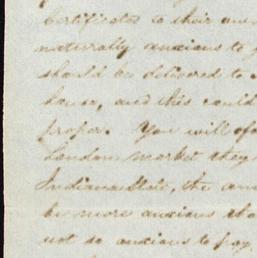 Certificates to their own
naturally anxious to
should be delivered to
house, and this could
proper. You will of
London market they
Indiana State, the am
be more anxious tha
not so anxious to pay,